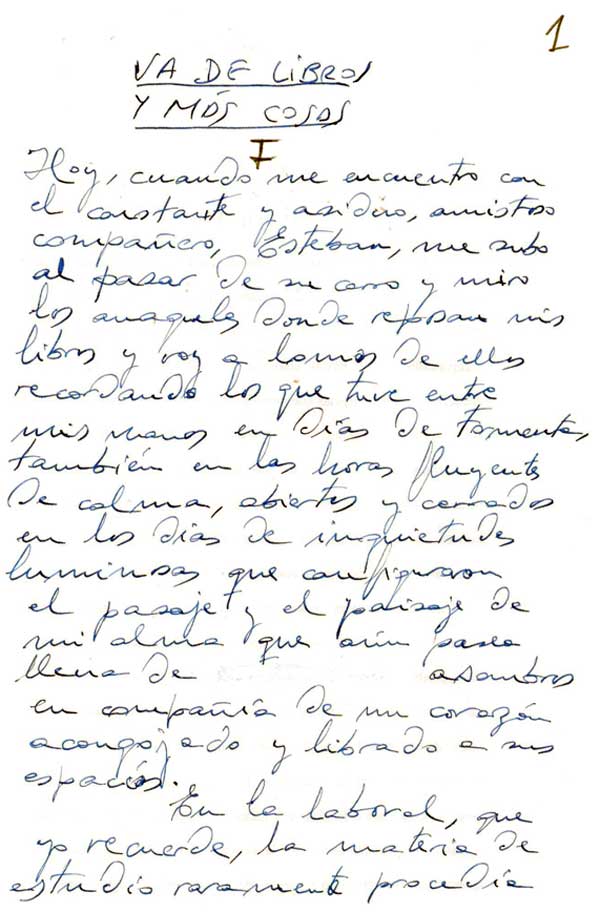 1
VA DE LIBROS
Y MÁS COSAS
I
Hoy, cuando me encuentro con
el constante y asiduo, amistoso
compañero, Esteban, me subo
al pasar de su carro y miro
los anaqueles donde reposan mis
libros y voy a lomos de ellos
recordando los que tuve entre
mis manos en días de tormenta,
también en las horas fluyentes
de calma, abiertos y cerrados
en los días de inquietudes
luminosas que configuraron
el pasaje y el paisaje de
mi alma que aún pasea
llena de asombros
en compañía de un corazón
acongojado y librado a sus
espacios.
En la laboral, que
yo recuerde, la materia de
estudio raramente procedía